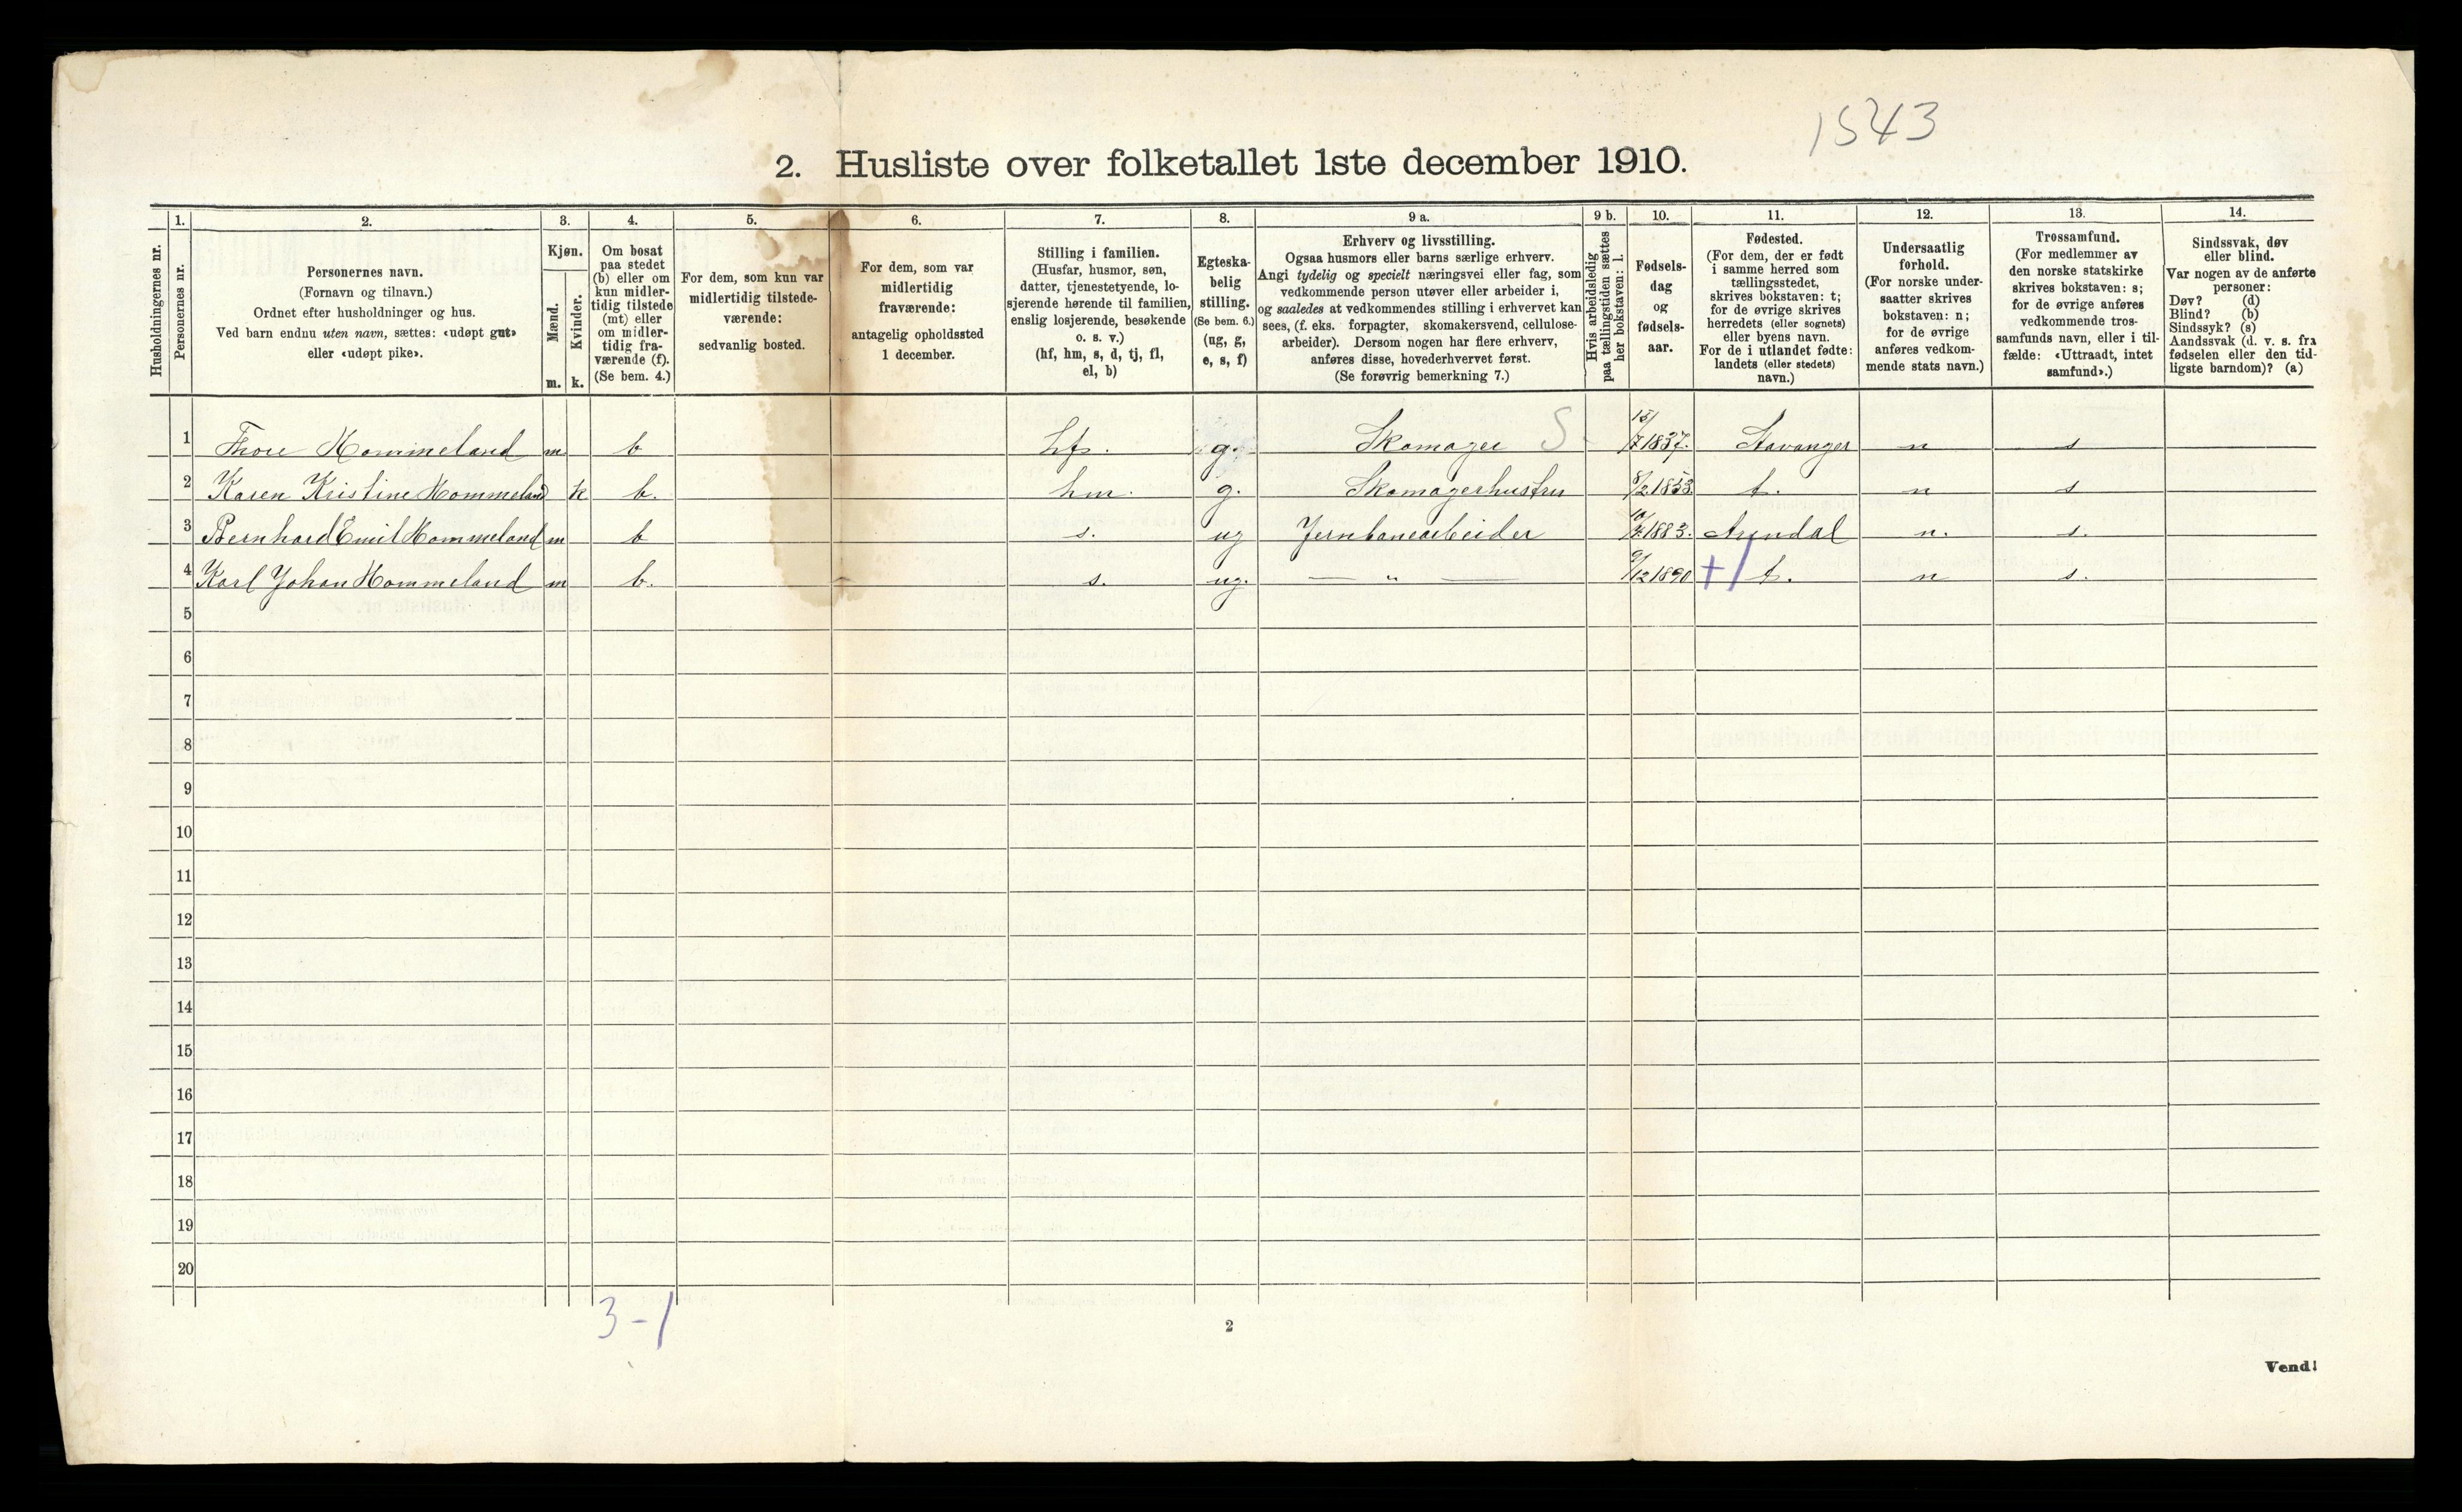 1543
2. Husliste over folketallet 1ste december 1910.
Husholdningernes nr.
1.
Personernes nr.
2.
Personernes navn.
(Fornavn og tilnavn.)
Ordnet efter husholdninger og hus.
Ved barn endnu uten navn, sættes: «udøpt gut»
eller «udøpt pike».
3.
Kjøn.
Mænd.
Kvinder.
m. k.
4.
Om bosat
paa stedet
(b) eller om
kun midler-
tidig tilstede
(mt) eller
om midler-
tidig fra-
værende (f).
(Se bem. 4.)
5.
For dem, som kun var
midlertidig tilstede-
værende:
sedvanlig bosted.
6.
For dem, som var
midlertidig
fraværende:
antagelig opholdssted
1 december.
7.
Stilling i familien.
(Husfar, husmor, søn,
datter, tjenestetyende, lo-
sjerende hørende til familien,
enslig losjerende, besøkende
o. s. v.)
(hf, hm, s, d, tj, fl,
el, b)
8.
Egteska-
belig
stilling.
(Se bem. 6.)
(ug, g,
e, s, f)
9 a.
Erhverv og livsstilling.
Ogsaa husmors eller barns særlige erhverv.
Angi tydelig og specielt næringsvei eller fag, som
vedkommende person utøver eller arbeider i,
og saaledes at vedkommendes stilling i erhvervet kan
sees, (f. eks. forpagter, skomakersvend, cellulose-
arbeider). Dersom nogen har flere erhverv,
anføres disse, hovederhvervet først.
(Se forøvrig bemerkning 7.)
9 b.
Hvis arbeidsledig
paa tællingstiden sættes
her bokstaven: l.
10.
Fødsels-
dag
og
fødsels-
aar.
11.
Fødested.
(For dem, der er født
i samme herred som
tællingsstedet,
skrives bokstaven: t;
for de øvrige skrives
herredets (eller sognets)
eller byens navn.
For de i utlandet fødte:
landets (eller stedets)
navn.)
12.
Undersaatlig
forhold.
(For norske under-
saatter skrives
bokstaven: n;
for de øvrige
anføres vedkom-
mende stats navn.)
13.
Trossamfund.
(For medlemmer av
den norske statskirke
skrives bokstaven: s;
for de øvrige anføres
vedkommende tros-
samfunds navn, eller i til-
fælde: «Uttraadt, intet
samfund».)
14.
Sindssvak, døv
eller blind.
Var nogen av de anførte
personer:
Døv? (d)
Blind? (b)
Sindssyk? (s)
Aandssvak (d. v. s. fra
fødselen eller den tid-
ligste barndom)? (a)
1 Thore Hommeland m b hf. g. Skomager S 15/7 1837. Stavanger n s
2 Karen Kristine Hommeland k b. hm. g. Skomagerhustru 8/2 1853. t. n s
3 Bernhard Emil Hommeland m b s. ug Jernbanearbeider 10/7 1883. Arendal n. s.
4 Karl Johan Hommeland m b. s. ug. — " — 9/12 1890 +/ t. n s.
5
6
7
8
9
10
11
12
13
14
15
16
17
18
19
20
3-1
2
Vend!